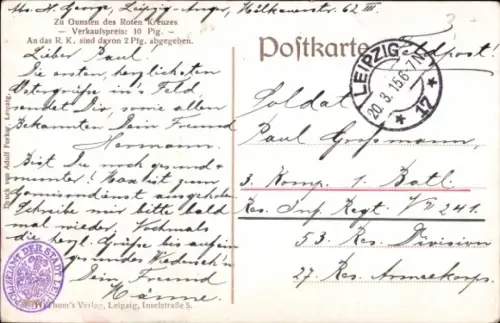 Zu Gunsten des Roten Kreuzes
— Verkaufspreis: 10 Pfg. —
An das R. K. sind davon 2 Pfg. abgegeben.
George, Leipzig-Anger, 62 III
Postkarte
Feldpost!
LEIPZIG
20. 3. 15. 6-7 N.
* 17 *
Lieber Paul
Die ersten, herzlichsten
Ostergrüße in's Feld,
sendet Dir, sowie allen
Bekannten Dein Freund
Hermann.
Bist Du noch gesund u.
munter! Max ist zum
Garnisondienst ausgehoben.
Schreibe mir bitte bald
mal wieder. Nochmals
die herzl. Grüße bis auf ein
gesundes Wiederseh'n
Dein Freund
Soldat
Paul Großmann,
3. Komp. 1. Batl.
Res. Inf. Regt. 241.
53. Res. Division
27. Res. Armeekorps.
Druck von Adolf Leipzig.
Verlag, Leipzig, Inselstraße 8.
DER STADT